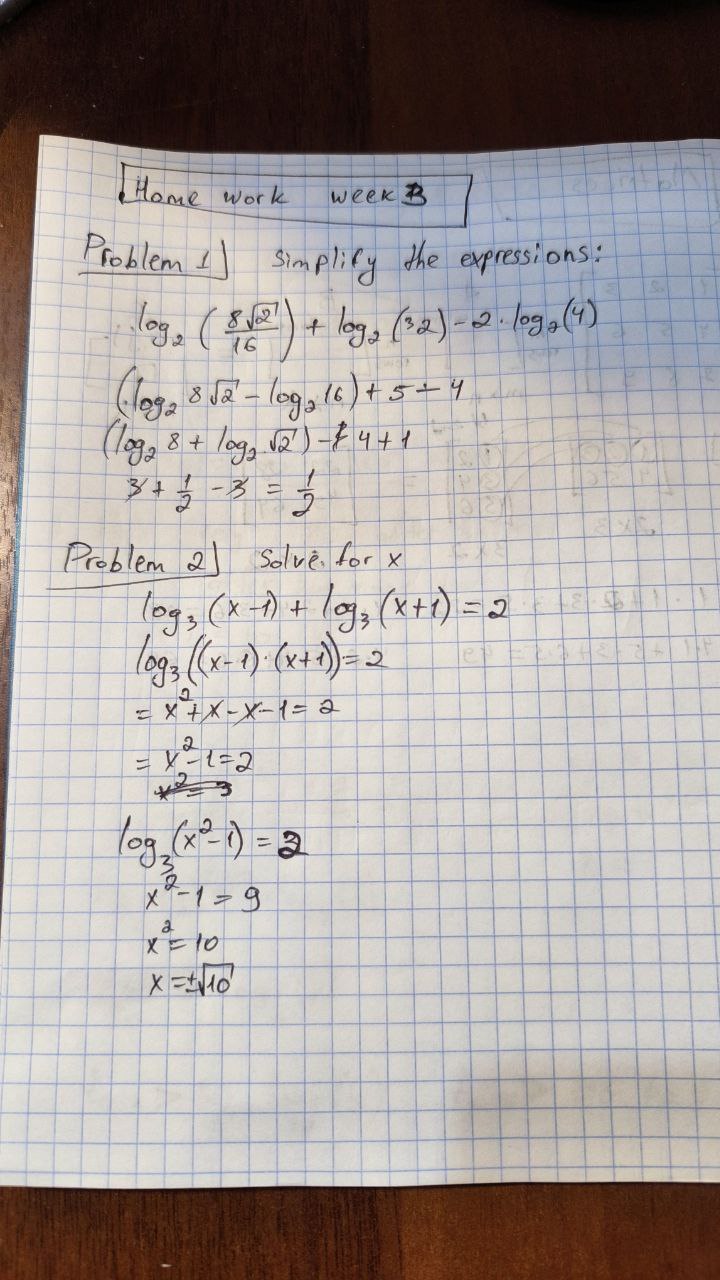 Home work week 3
Problem 1 Simplify the expressions:
log₂(8√2/16) + log₂(32) - 2·log₂(4)
(log₂ 8√2 - log₂ 16) + 5 - 4
(log₂ 8 + log₂ √2) - 4 + 1
3 + 1/2 - 3 = 1/2
Problem 2 Solve for x
log₃(x-1) + log₃(x+1) = 2
log₃((x-1)·(x+1)) = 2
= x² + x - x - 1 = 2
= x² - 1 = 2
x² = 3
log₃(x² - 1) = 2
x² - 1 = 9
x² = 10
x = ±√10